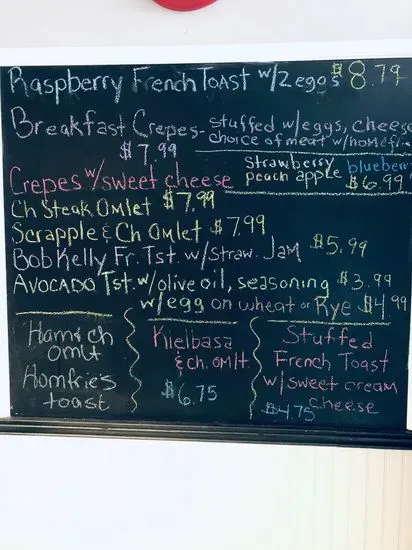 Raspberry French Toast w/2 eggs $8.79
Breakfast Crepes - stuffed w/eggs, cheese
choice of meat w/homefri
$7.99
Strawberry blueberr
Crepes w/sweet cheese peach apple $6.99
Ch Steak Omlet $7.99
Scrapple & Ch Omlet $7.99
Bob Kelly Fr. Tst w/straw. Jam $5.99
Avocado Tst. w/olive oil, seasoning $3.99
w/egg on wheat or Rye $4.99
Ham & ch
omlt
Homfrie's
toast
Kielbasa
& ch. omlt.
$6.75
Stuffed
French Toast
w/sweet cream
cheese
$4.75